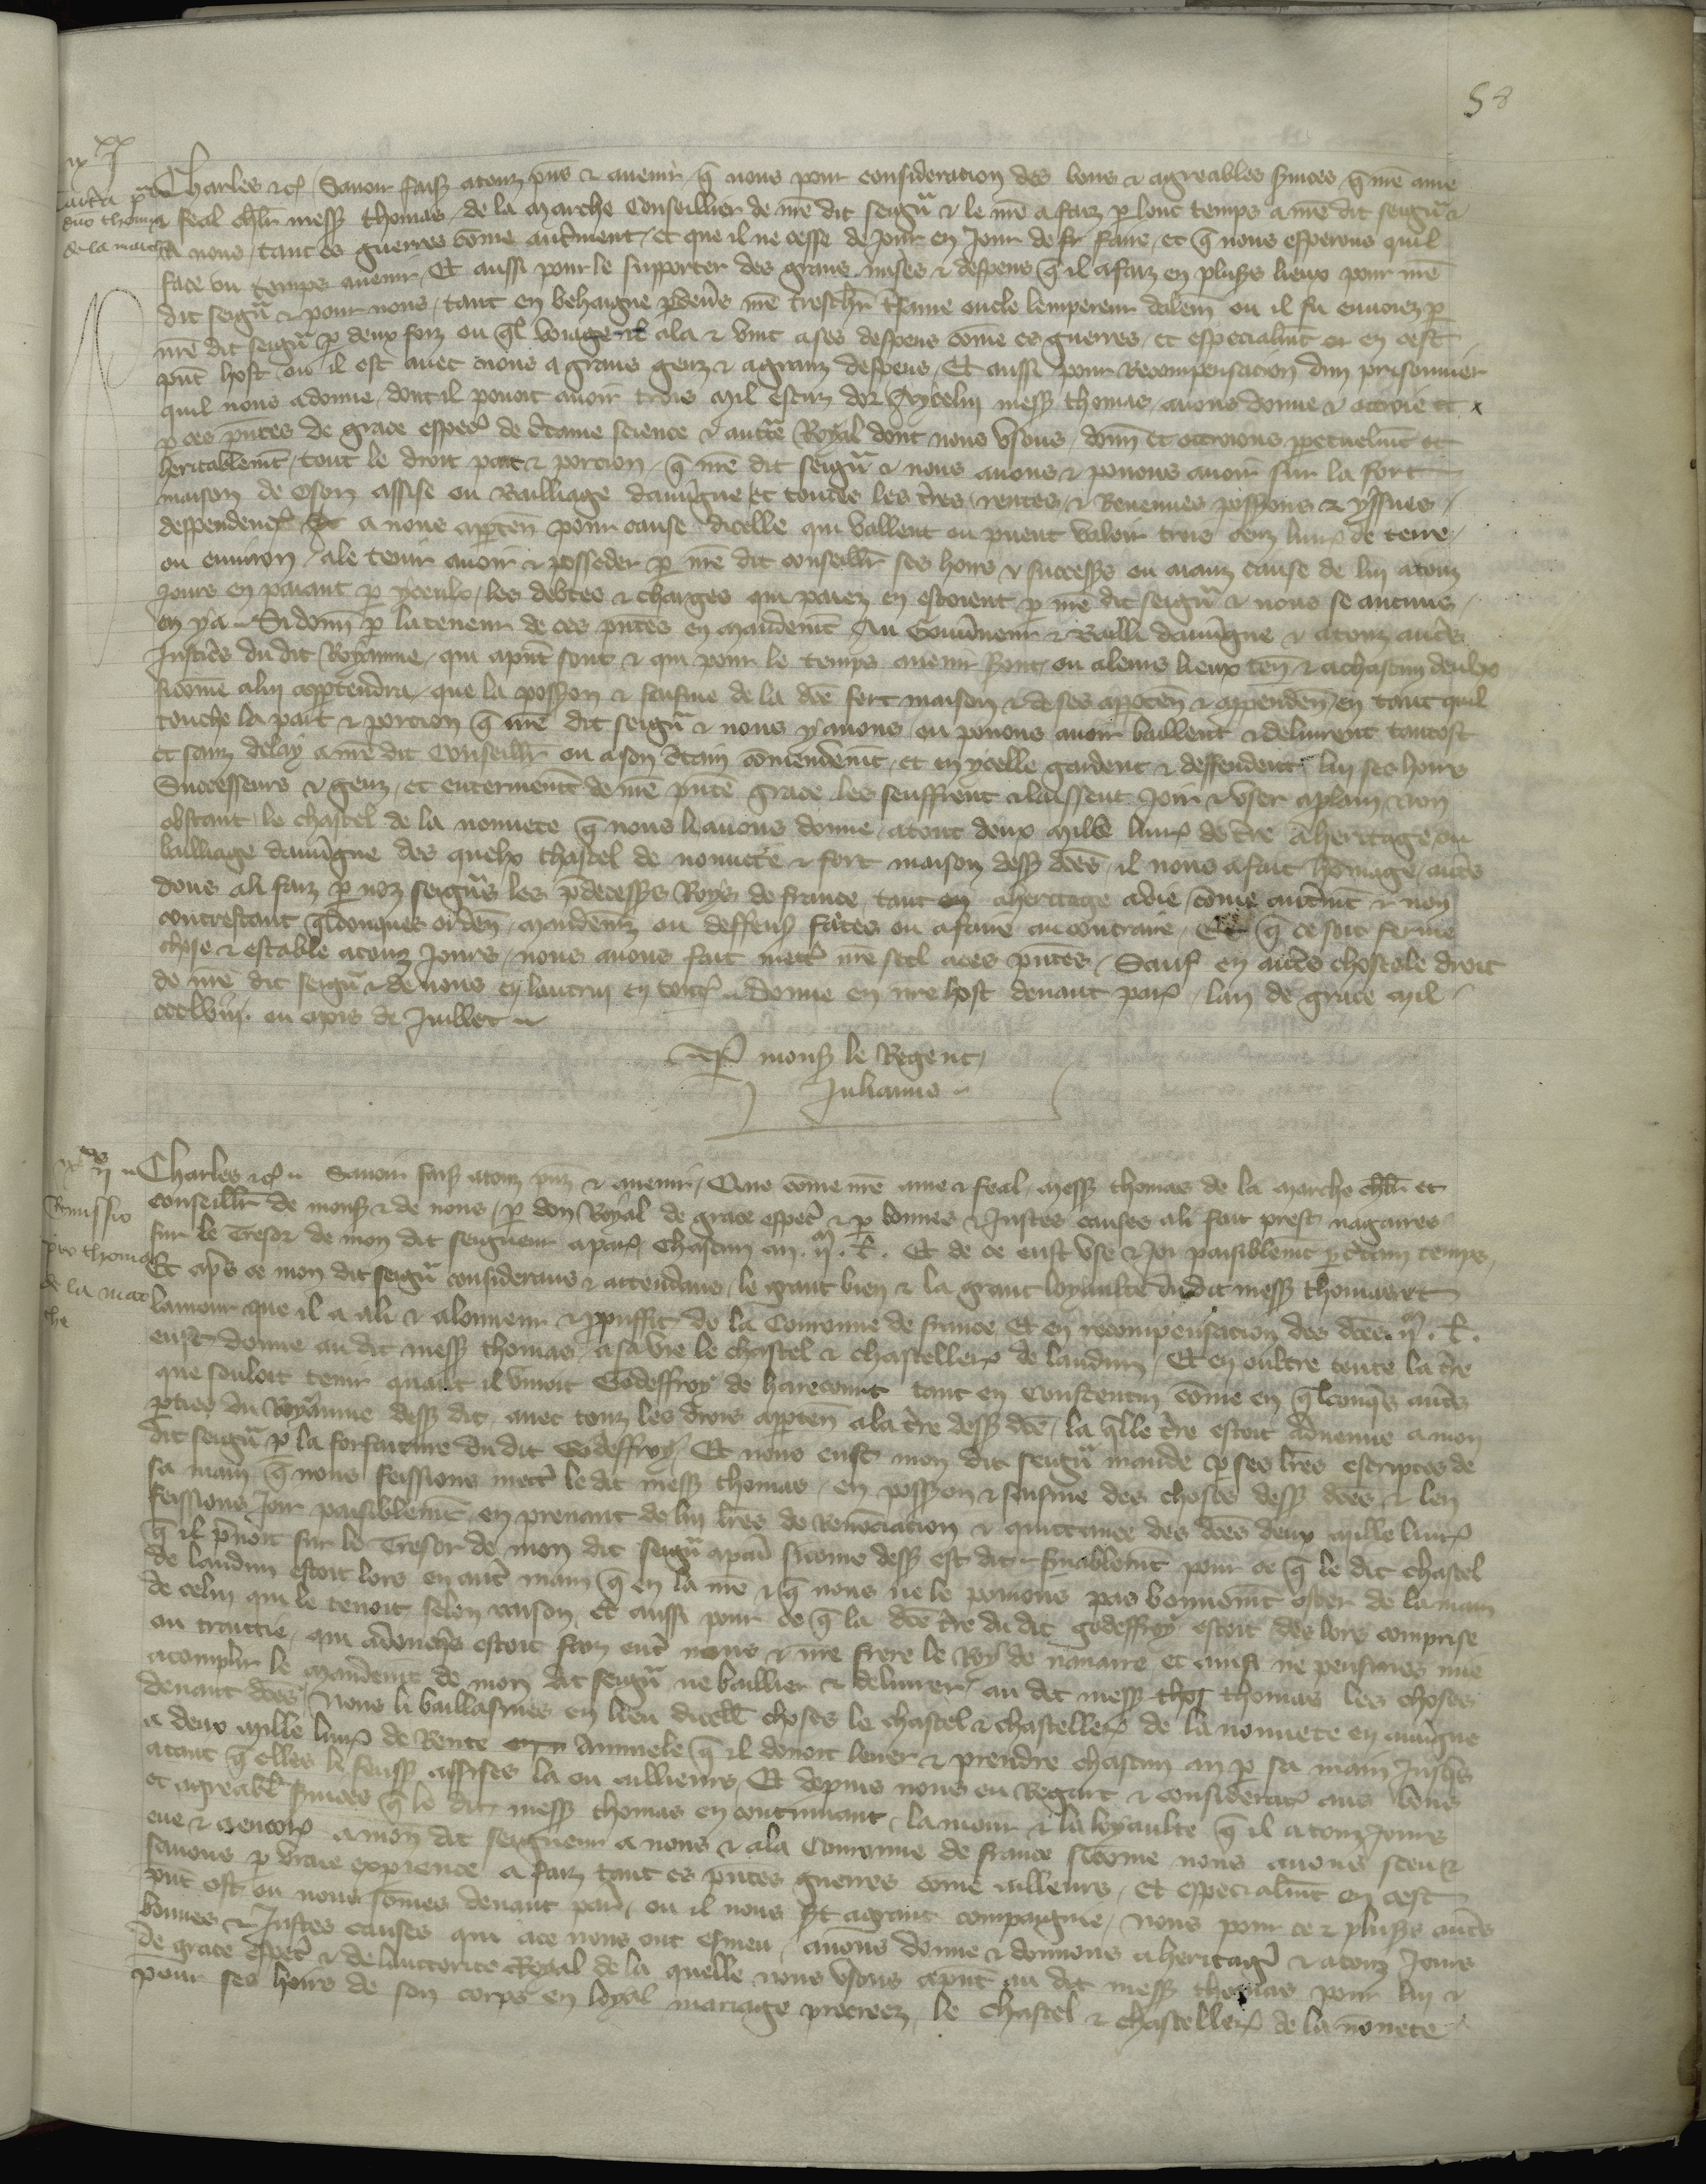 58
Charles etc Savoir faisons a touz pns & avenir q̄ nous pour consideracion des bons & agreables svices q̄ nre ame
Carta p
dno thoma
de la marcha
& feal chlr mess thomas de la marche Conseillier de nre dit seigñ & le nre a faiz p lonc temps a nre dit seigñ &
a nous tant es guerres cōme autrement et que il ne cesse de Jour en Jour de fr faire et q̄ nous esperons quil
face ou temps avenir Et aussi pour le supporter des grans mises & despens q̄ il a faiz en plusrs lieux pour nre
dit seigñ & pour nous tant en behaigne p devs nre treschr t fame oncle lempereur dalem ou il fu envoiez p
nre dit seigñ p deux foiz ou ql voiage il ala & vint a ses despens cōme es guerres et especialmt or en cest
pnt host ou il est avec nous a grans genz & a granz despens Et aussi pour Recompensacion dun prisonnier
quil nous a donne dont il povoit avoir trois mil escuz dor A ycelui mess thomas avons donne & ottroie et
p ces pntes de grace especl de ctaine science & auctte Royal dont nous usons donn et ottroions ppetuelmt et
heritablemt tout le droit part & porcion q̄ nre dit seigñ & nous avons & povons avoir sur la fort
maison de Oson assise ou Bailliage dauvgne et toutes les tres rentes & Revenues possions & yssues
despendenc a nous apten pour cause dicelle qui vallent ou pevent valoir trois cenz livr de terre
ou environ a le tenir avoir & posseder p nre dit conseillr ses hoirs & successrs ou aianz cause de lui a touz
Jours en paiant p yceulx les debtes & charges qui paiez en estoient p nre dit seigñ & nous se aucuns
en y a Si donn p la teneur de ces pntes en mandemt Au Gouvneur & Bailli dauvgne & a touz autrs
Justicrs du dit Royaume qui a pnt sont & qui pour le temps avenir sont ou a leurs lieux ten & a chascun deulx
sicōme a lui apptendra que la possion & saisine de la dce fort maison & de ses apptēn & appendēn en tant quil
touche la part & porcion q̄ nre dit seigñ & nous y avons ou povons avoir baillent & delivrent tantost
et sanz delay a nre dit Conseillr ou a son ctain cōmendemt et en ycelle gardent & deffendent lui ses hoirs
Successeurs & genz et enterinemt de nre pnte grace les seuffrent & laissent Joir & user a plain Non
obstant le chastel de la nonnete q̄ nous li avons donne a tout deux mille livr de tre a heritage ou
bailliage dauvgne des quelx chastel de nonnete & fort maison dess dces il nous a fait hōmage autrs
dons a li faiz p noz seigñs les pdecessrs Roys de france tant en a heritage a vie cōme autmt & non
contrestant qlconques orden mandemz ou deffens faites ou a faire au contraire Et q̄ ce soit ferme
chose & estable a touz Jours nous avons fait mettr nre seel a ces pntes Sauf en autrs choses le droit
de nre dit seigñ & de nous & lautrui en toutes Donne en nre host devant par lan de grace mil
ccclviii. ou mois de Juillet
p monsr le Regent
Julianus
Remissio
pro thoma
de la mar
che
Charles etc Savoir faisons a touz pnz & avenir Que cōme nre ame & feal mess thomas de la marche chlr et
conseillr de monsr & de nous p don Royal de grace especl & p bonnes & Justes causes a li fait prest nagaires
sur le Tresor de mon dit seigneur a par chascun an .ij. m. l. Et de ce eust use & Joi paisiblemt p ctain temps
Et apres ce mon dit seigñ considerans & attendans le grant bien & la grant loyaulte du dit mess thomas et
lamour que il a a li & alonneur & pouffit de la Couronne de france Et en recompensacion des dces .ij. m. l.
eust donne au dit mess thomas a sa vie le chastel & chasteller de laudun Et en oultre toute la tre
que souloit tenir quant il vivoit Godeffroy de harecourt tant en Constentin cōme en qlconqs autrs
pties du Royaume dess dit avec touz les drois apptēn a la tre dess dce la qlle tre estoit advenue a mon
dit seigñ p la forfaiture du dit Godeffroy Et nous eust mon dit seigñ mande p ses lres escriptes de
sa main q̄ nous feissions mettr le dit mess thomas en possion & saisine des choses dess dces & len
feissions Joir paisiblemt en prenant de lui lres de renonciacion & quittance des dces deux mille livr
q̄ il pnoit sur le Tresor de mon dit seigñ a par sicōme dess est dit & finablemt pour ce q̄ le dit chastel
de laudun estoit lors en autr main q̄ en la nre & q̄ nous ne le povions pas bonnemt oster de la main
de celui qui le tenoit selon raison et aussi pour ce q̄ la dce tre du dit godeffroy estoit des lors comprise
ou traittie qui advenqs estoit faiz entr nous & nre frere le Roy de navarre et ainsi ne pensimes mie
acomplir le mandemt de mon dit seigñ ne baillier & delivrer au dit mess thos thomas les choses
devant dces Nous li baillasmes en lieu dicell choses le chastel & chasteller de la nonnete en auvgne
a deux mille livr de Rente Annuele q̄ il devoit lever & prendre chascun an p sa main Jusqs
atant q̄ elles le feuss assises la ou ailleurs Et depuis nous eu Regart & considerac aus bons
et agreabl svices q̄ le dit mess thomas en continuant lamour & la loyaulte q̄ il a touz Jours
eue & a encor a mon dit seigneur a nous & a la Couronne de france sicōme nous avons sceu &
savons p vraie experience a faiz tant es pntes guerres cōme ailleurs et especialmt en cest
pnt ost ou nous sōmes devant par ou il nous st a grant compaignie Nous pour ce & plusrs autrs
bonnes & Justes causes qui a ce nous ont esmeu avons donne & donnons a heritage & a touz Jours
de grace especl & de lauctorite Royal de la quelle nous usons a pnt au dit mess thomas pour lui &
pour ses hoirs de son corps en loyal mariage procreez le chastel & chasteller de la nonnete